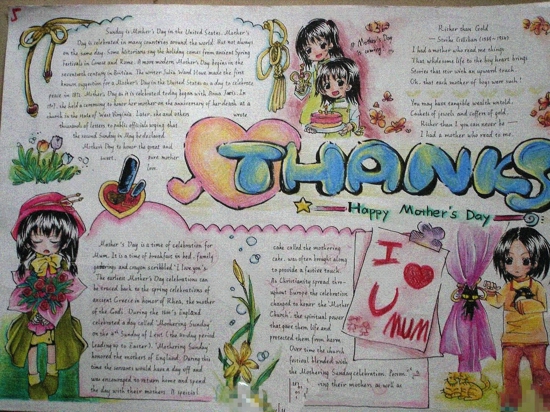 5
Sunday is Mother's Day in the United States. Mother's
Day is celebrated in many countries around the world. But not always
on the same day. Some historians say the holiday comes from ancient Spring
Festivals in Greece and Rome. A more modern Mother's Day begins in the
twentieth century in Britain. The writer Julia Ward Howe made the first
known suggestion for a Mother's Day in the United States as a day to celebrate
peace in 1872. Mother's Day as it is celebrated today began with Anna Jarvis. In
1907, she held a ceremony to honor her mother on the anniversary of her death at a
church in the state of West Virginia. Later, she and others wrote
thousands of letters to public officials asking that
the second Sunday in May be declared
Mother's Day to honor the great and
sweet, pure mother
love.
Mother's Day is
coming!
Richer than Gold
I had a mother who read me things
That wholesome life to the boy heart brings
Stories that stir with an upward touch
Oh, that each mother of boys were such!
You may have tangible wealth untold.
Caskets of jewels and coffers of gold.
Richer than I you can never be —
I had a mother who read to me.
THANKS
Happy Mother's Day
Mother's Day is a time of celebration for
Mum. It is a time of breakfast in bed, family
gatherings and crayon scribbled "I love you"s.
The earliest Mother's Day celebrations can
be traced back to the spring celebrations of
ancient Greece in honor of Rhea, the mother
of the Gods. During the 1600's England
celebrated a day called "Mothering Sunday"
on the 4th Sunday of Lent (the 40 day period
leading up to Easter). "Mothering Sunday"
honored the mothers of England. During this
time the servants would have a day off and
was encouraged to return home and spend
the day with their mothers. A special
cake called the mothering
cake, was often brought along
to provide a festive touch.
As Christianity spread thro-
ughout Europe the celebration
changed to honor the "Mother
Church", the spiritual power
that gave them life and
protected them from harm.
Over time the church
festival blended with
the Mothering Sunday celebration. Person
ring their mothers as well as
I
U
MUM